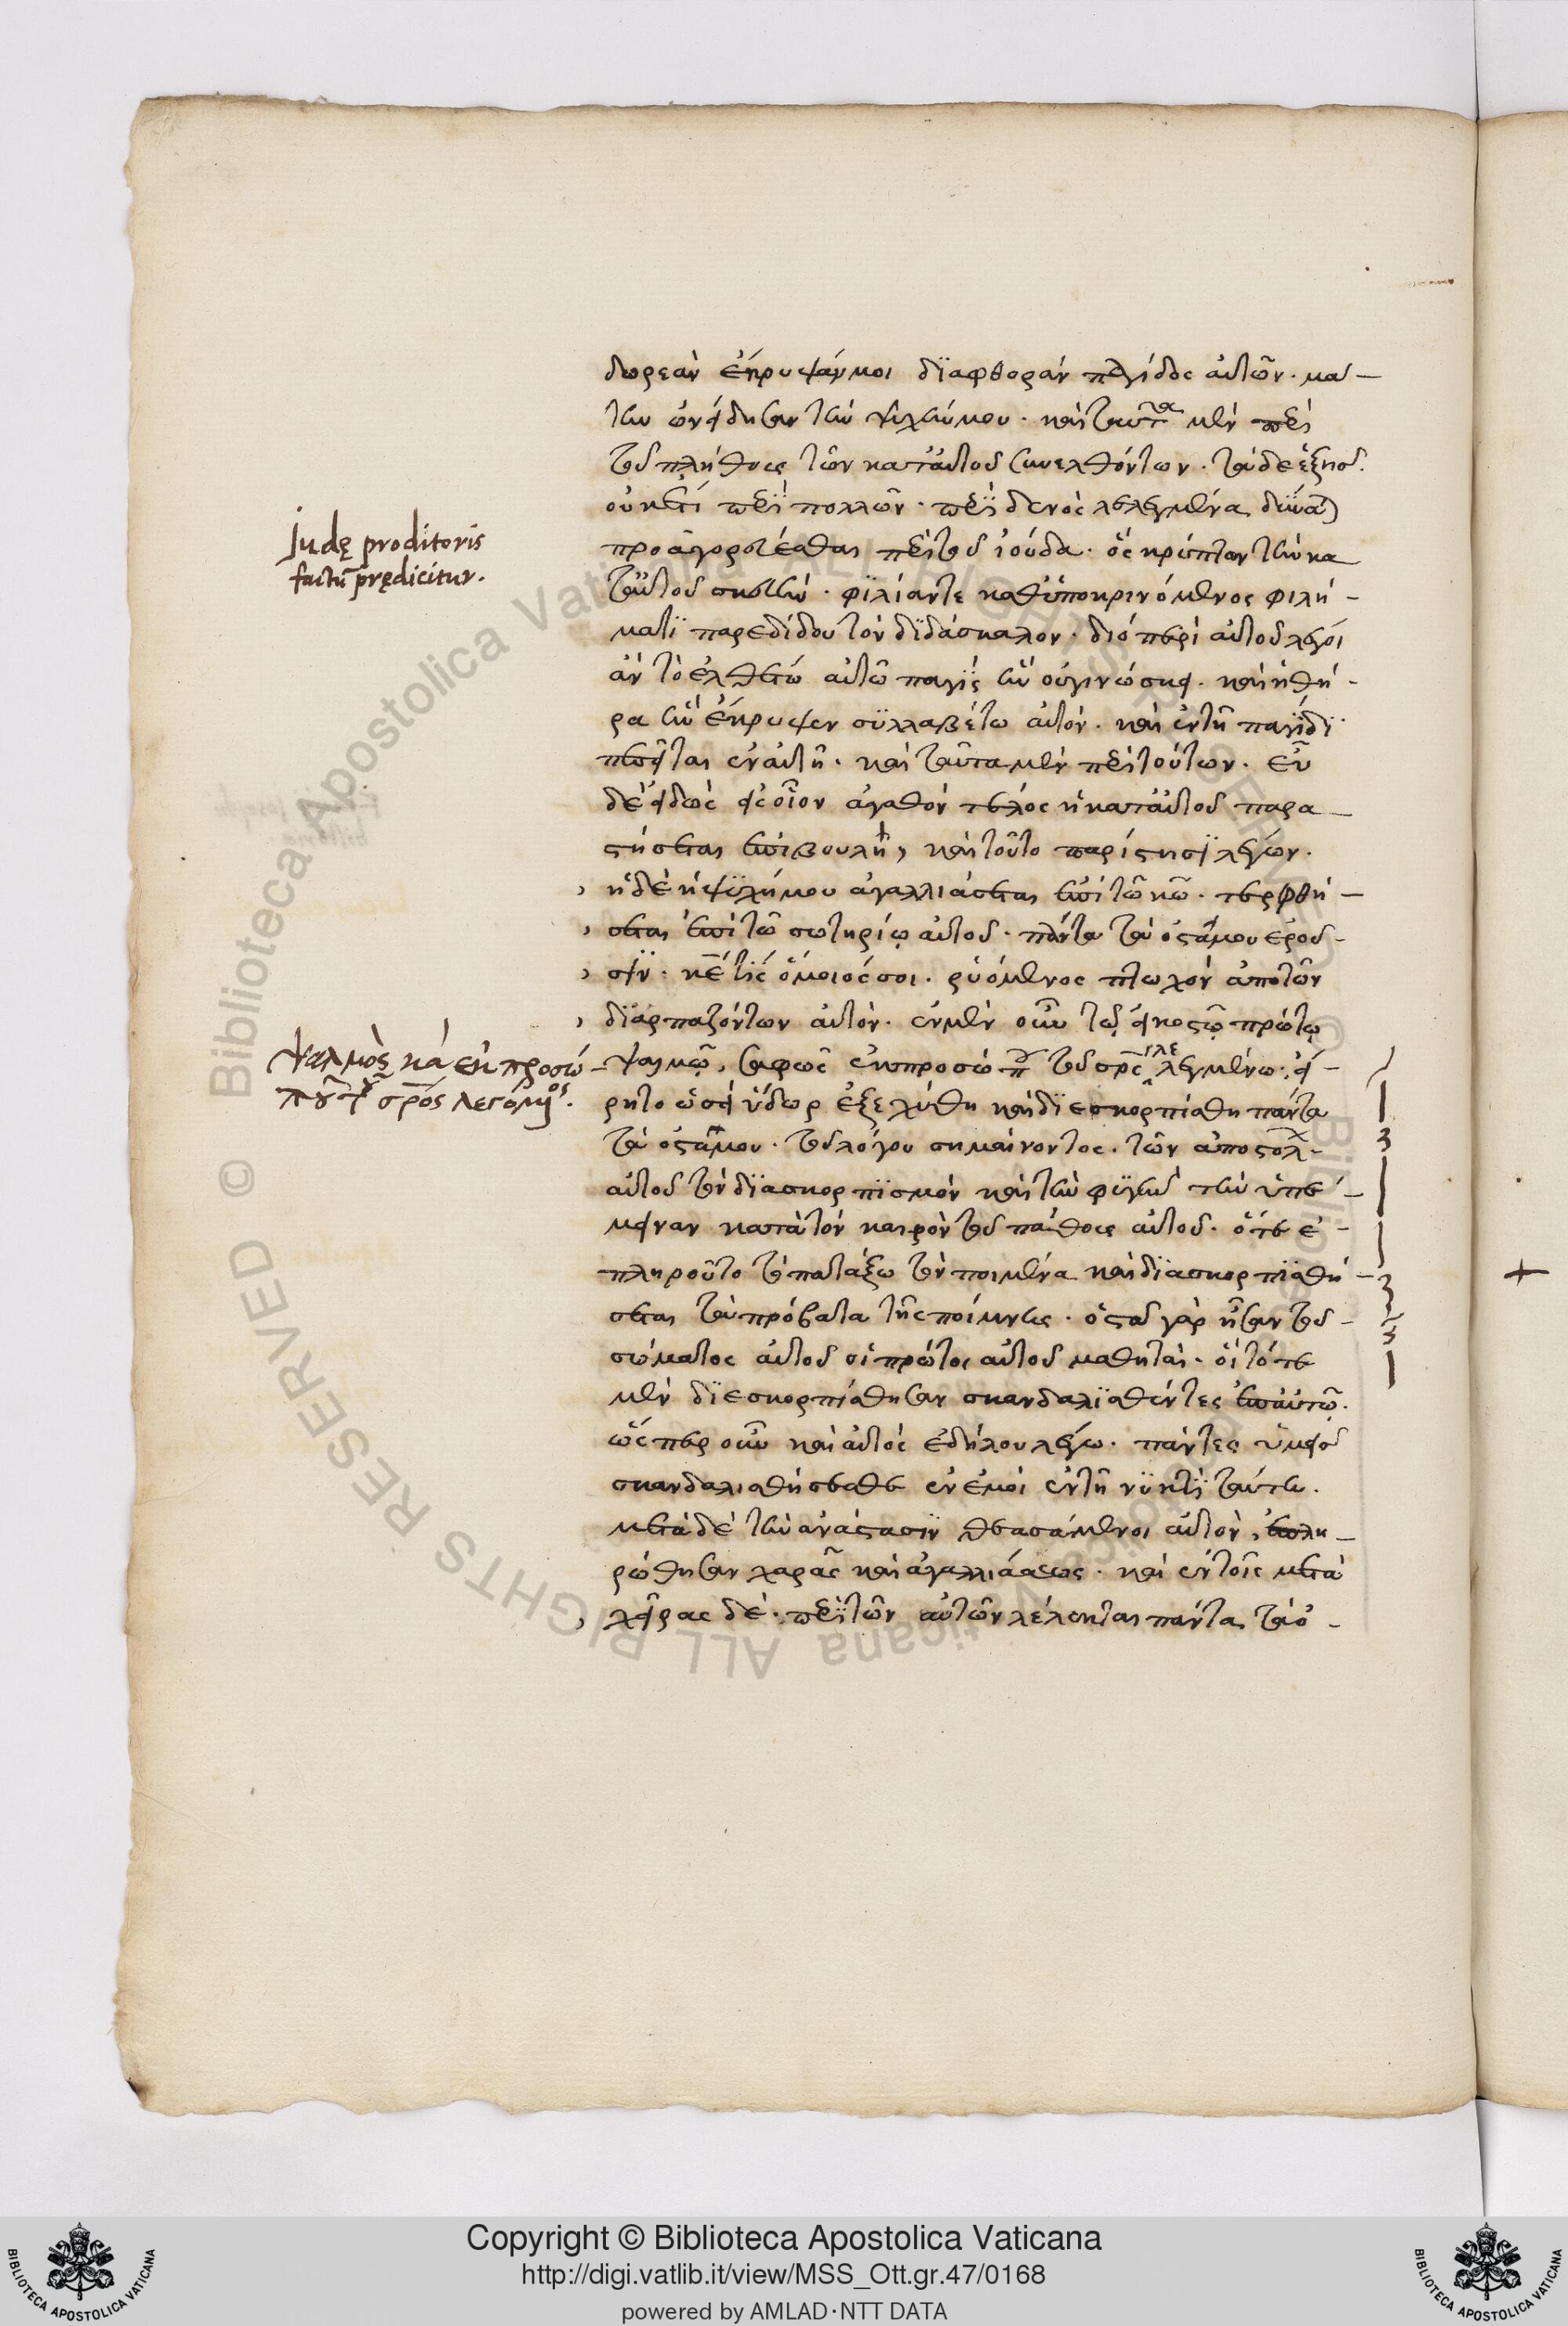 δωρεὰν ἔκρυψάν μοι διαφθορὰν παγίδος αὐτῶν. μα-
την ὠνείδισαν τὴν ψυχήν μου. καὶ ταῦτα μὲν περὶ
τοῦ πλήθους τῶν κατ' αὐτοῦ συνελθόντων. τὰ δὲ ἑξῆς
οὐκέτι περὶ πολλῶν. περὶ δὲ ἑνὸς λελεγμένα δύναται
προαγορεύεσθαι περὶ τοῦ ἰούδα. ὃς κρύπτων τὴν κα
τ' αὐτοῦ σκευήν. φιλίαν τε καθυποκρινόμενος φιλή-
ματι παρεδίδου τὸν διδάσκαλον. διόπερ ἐπ' αὐτοῦ λέγοι
ἂν τὸ ἐλθέτω αὐτῷ παγὶς ἣν οὐ γινώσκει. καὶ ἡ θή-
ρα ἣν ἔκρυψεν συλλαβέτω αὐτόν. καὶ ἐν τῇ παγίδι
πεσεῖται ἐν αὐτῇ. καὶ ταῦτα μὲν περὶ τούτων. εὖ
δὲ εἰδὼς εἰς οἷον ἀγαθὸν τέλος ἡ κατ' αὐτοῦ παρα
στήσεται ἐπιβουλὴ, καὶ τοῦτο παρίστησι λέγων.
ἡ δὲ ἡ ψυχή μου ἀγαλλιάσεται ἐπὶ τῷ κῶ. τερφθή-
σεται ἐπὶ τῷ σωτηρίῳ αὐτοῦ. πάντα τὰ ὀστᾶ μου ἐροῦ-
σιν. κε τίς ὅμοιός σοι. ῥυόμενος πτωχὸν ἀπὸ τῶν
διαρπαζόντων αὐτόν. ἐν μὲν οὖν τῷ εἰκοστῷ πρώτῳ
ψαλμῷ, σαφῶς ἐκ προσώπου τοῦ σρς λελεγμένω. εἴ-
ρητο ὡσεὶ ὕδωρ ἐξεχύθη καὶ διεσκορπίσθη πάντα
τὰ ὀστᾶ μου. τοῦ λόγου σημαίνοντος. τῶν ἀποστόλων
αὐτοῦ τὸν διασκορπισμὸν καὶ τὴν φυγὴν τὴν ὑπέ-
μειναν κατὰ τὸν καιρὸν τοῦ πάθους αὐτοῦ. ὅτε ἐ-
πληροῦτο τὸ πατάξω τὸν ποιμένα καὶ διασκορπισθή-
σεται τὰ πρόβατα τῆς ποίμνης. ὀστᾶ γὰρ ἦσαν τοῦ
σώματος αὐτοῦ οἱ πρῶτοι αὐτοῦ μαθηταὶ. οἳ τότε
μὲν διεσκορπίσθησαν σκανδαλισθέντες ἐπ' αὐτῷ.
ὥσπερ οὖν καὶ αὐτὸς ἐδήλου λέγων. πάντες ὑμεῖς
σκανδαλισθήσεσθε ἐν ἐμοὶ ἐν τῇ νυκτὶ ταύτῃ.
μετὰ δὲ τὴν ἀνάστασιν θεασάμενοι αὐτὸν, ἐπλη-
ρώθησαν χαρᾶς καὶ ἀγαλλιάσεως. καὶ ἐν τοῖς μετὰ
χεῖρας δὲ. περὶ τῶν αὐτῶν λέλεκται πάντα τὰ ὀ-
Judę proditoris
factũ prędicitur.
ψαλμὸς κά ἐκ προσώ-
που τοῦ σρος λεγόμενος.
Copyright © Biblioteca Apostolica Vaticana
http://digi.vatlib.it/view/MSS_Ott.gr.47/0168
powered by AMLAD·NTT DATA
BIBLIOTECA APOSTOLICA VATICANA
BIBLIOTECA APOSTOLICA VATICANA
© Biblioteca Apostolica Vaticana ALL RIGHTS RESERVED
© Biblioteca Apostolica Vaticana ALL RIGHTS RESERVED